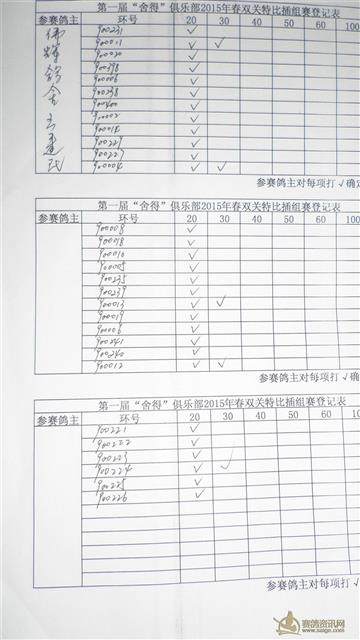 第一届“舍得”俱乐部2015年春双关特比插组赛登记表
参赛鸽主 环号 20 30 40 50 60 70 80
900231 ✓
900011 ✓ ✓
900020 ✓
900398 ✓
900006 ✓
900238 ✓
900400 ✓
900002 ✓
900014 ✓
900229 ✓
900227 ✓
900004 ✓ ✓
参赛鸽主对每项打✓确定
第一届“舍得”俱乐部2015年春双关特比插组赛登记表
参赛鸽主 环号 20 30 40 50 60 70 80
900008 ✓
900018 ✓
900010 ✓
900005 ✓
900235 ✓
900239 ✓
900013 ✓ ✓
900019 ✓
900009 ✓
900241 ✓
900240 ✓
900012 ✓ ✓
参赛鸽主对每项打✓确
第一届“舍得”俱乐部2015年春双关特比插组赛登记表
参赛鸽主 环号 20 30 40 50 60 70 80
900221 ✓
900222 ✓
900223 ✓
900224 ✓ ✓
900225 ✓
900226 ✓
参赛鸽主对每项打✓
赛鸽资讯网
www.saige.com